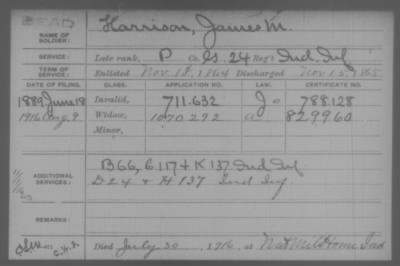 DEAD
NAME OF SOLDIER: Harrison, James M.
SERVICE: Late rank, P Co. G. 24 Reg't Ind. Inf
TERM OF SERVICE: Enlisted Nov. 18, 1864 Discharged Nov 15, 1865
DATE OF FILING. CLASS. APPLICATION NO. LAW. CERTIFICATE NO.
1889 June 18 Invalid, 711.632 J 788.128
1916 Aug. 9 Widow, 1070292 829960
Minor,
ADDITIONAL SERVICES: B 66, C 117 + K 137 Ind Inf
D 24 & H 137 Ind Inf.
REMARKS:
Died July 30, 1916, at Nat Mil Home Ind